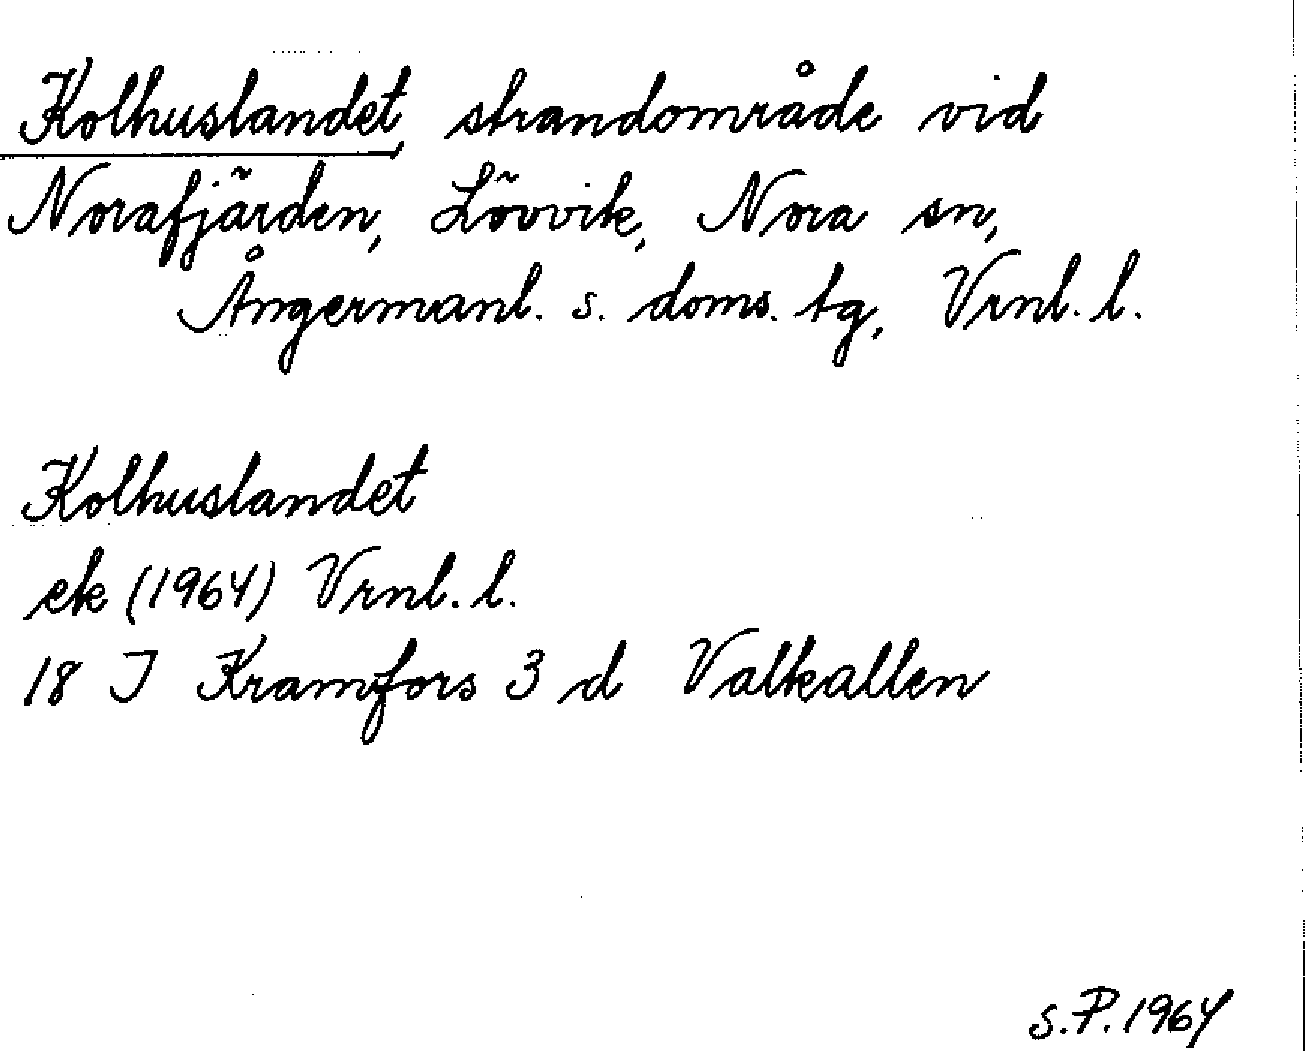 Kolhuslandet, strandområde vid
Norafjärden, Lövvik, Nora sn,
Ångermanl. s. doms. tg, Vrnl. l.
Kolhuslandet
ek (1964) Vrnl. l.
18 I Kramfors 3 d Valkallen
S.P. 1964